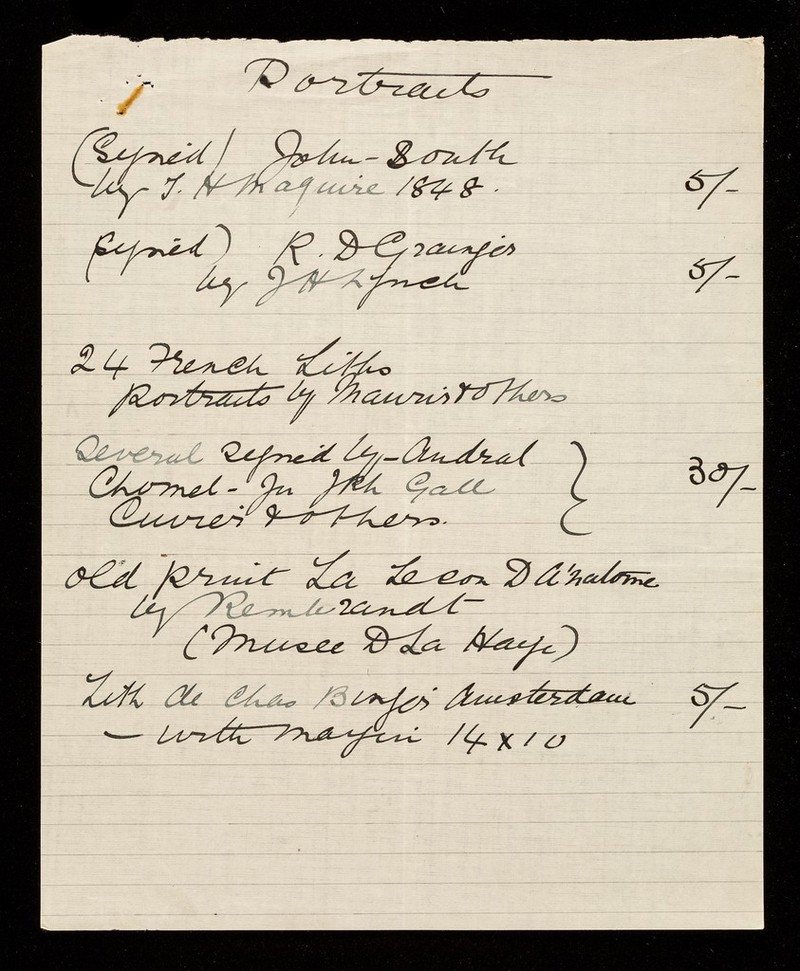 Portraits
(Signed) John-South
by T. H Maguire 1848. 5/-
(Signed) R. D Grainger
by J H Lynch 5/-
24 French Liths
Portraits by Mauris & Others
Several signed by - Andral
Chomel - Gall 30/-
Cuvier & others.
Old print La Lecon D A'natome
by Rembrandt
(Musee D La Haye)
Lith de Chas Binger Amsterdam 5/-
- with margin 14 x 10